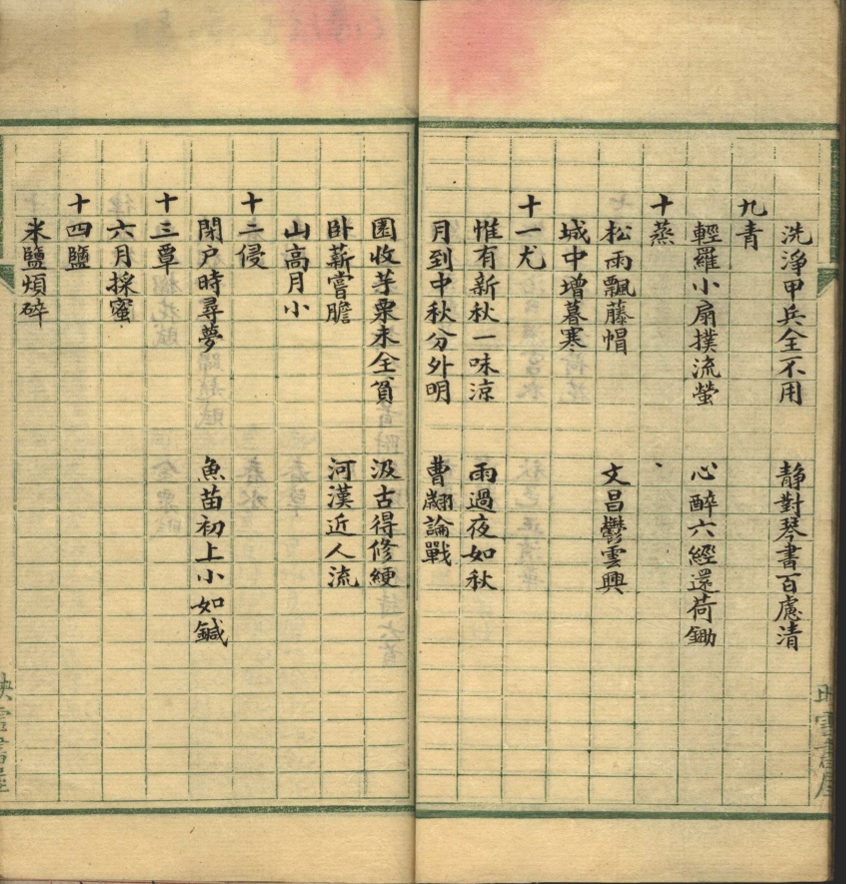 洗淨甲兵全不用　靜對琴書百慮清
九青
輕羅小扇撲流螢　心醉六經還荷鋤
十蒸
松雨飄藤帽　文昌鬱雲興
城中增暮寒
十一尤
惟有新秋一味涼　雨過夜如秋
月到中秋分外明　曹劌論戰
園收芋栗未全貧　汲古得修綆
卧薪嘗膽　河漢近人流
山高月小
十二侵
閉户時尋夢　魚苗初上小如鍼
十三覃
六月採蜜
十四鹽
米鹽煩碎